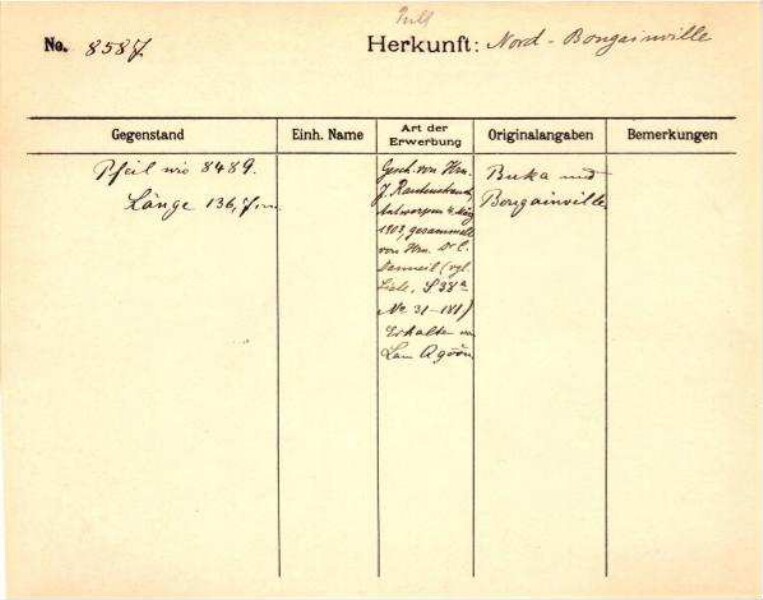 No. 8587
Herkunft: Nord-Bougainville
Gegenstand
Einh. Name
Art der Erwerbung
Originalangaben
Bemerkungen
Pfeil wie 8489.
Länge 136,7 cm.
Gesch. von Hrn.
J. Rautenstrauch,
Antwerpen 4. März
1903, gesammelt
von Hrn. Dr C.
Danneil (vgl.
Liste, S 38a
No 31-181)
Erhalten von
Lau
Buka und
Bougainville